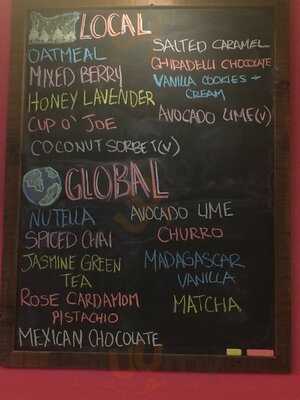 LOCAL
OATMEAL
MIXED BERRY
HONEY LAVENDER
CUP O' JOE
COCONUT SORBET(V)
SALTED CARAMEL
GHIRADELLI CHOCOLATE
VANILLA COOKIES +
CREAM
AVOCADO LIME(V)
GLOBAL
NUTELLA
SPICED CHAI
JASMINE GREEN
TEA
ROSE CARDAMOM
PISTACHIO
MEXICAN CHOCOLATE
AVOCADO LIME
CHURRO
MADAGASCAR
VANILLA
MATCHA